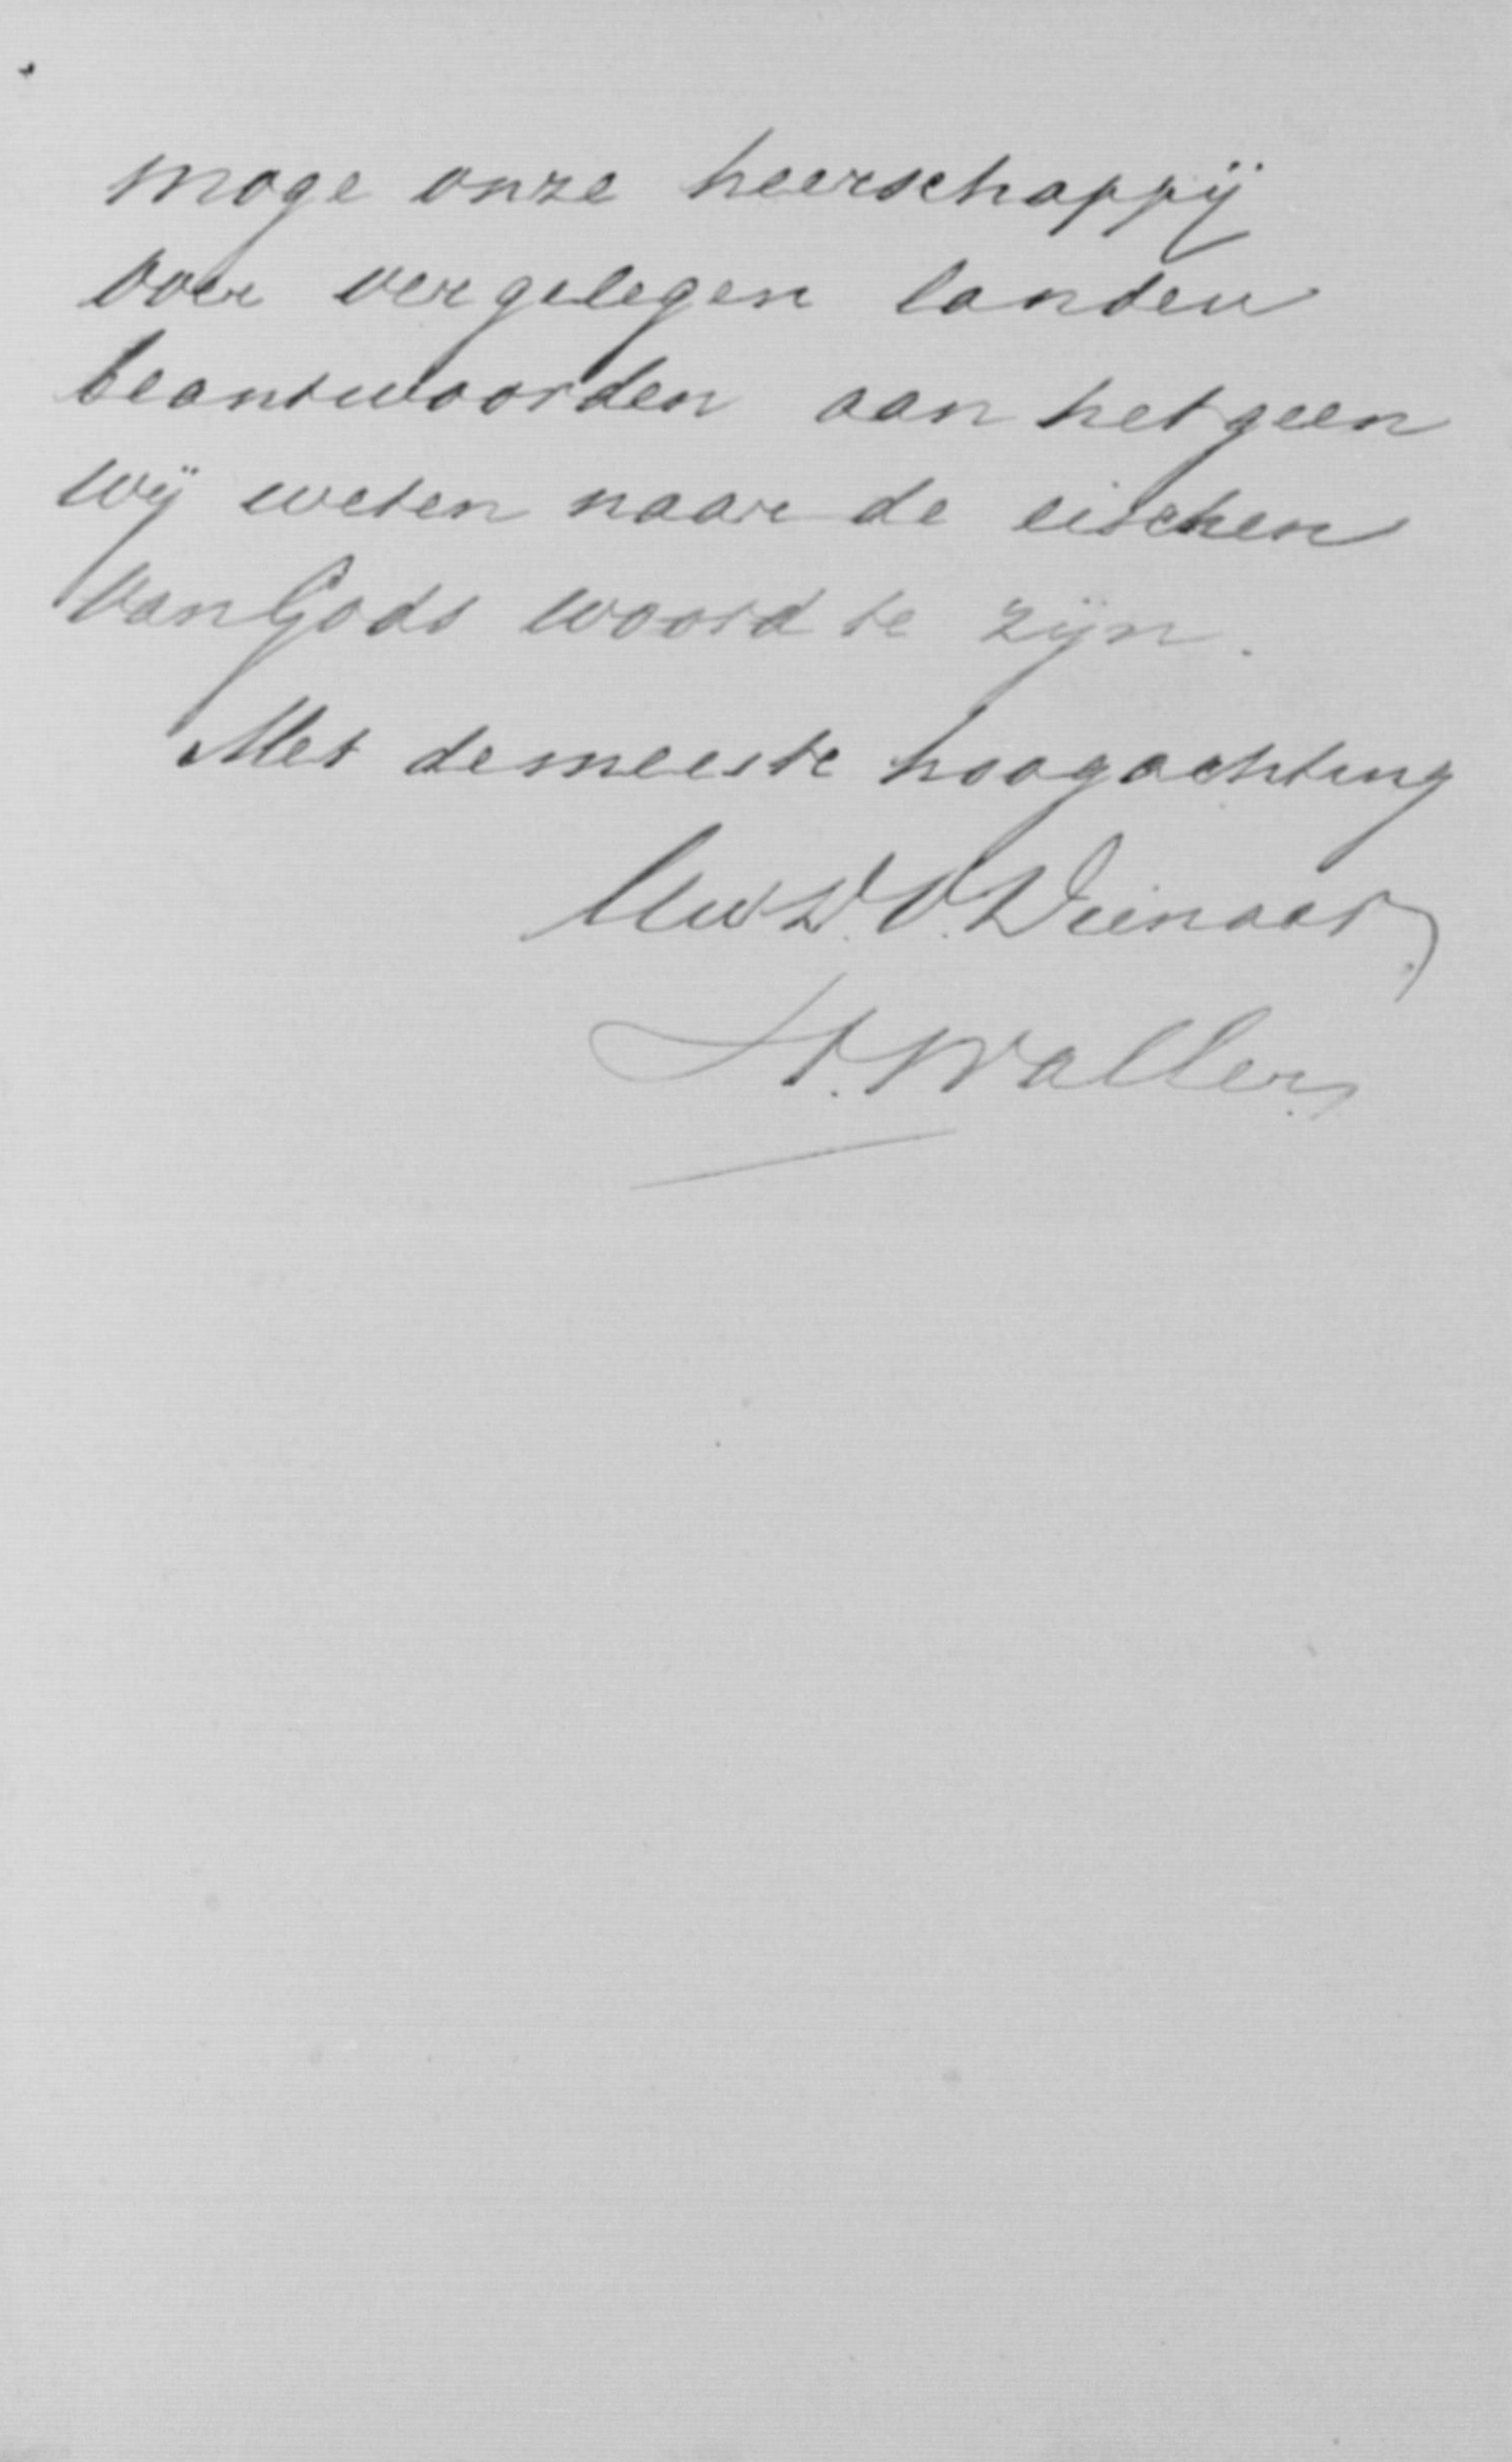 moge onze heerschappij
over vergelegen landen
beantwoorden aan hetgeen
wij weten naar de eischen
van Gods woord te zijn.
Met de meeste hoogachting
Uw D.V. Dienaar
H. Wallers